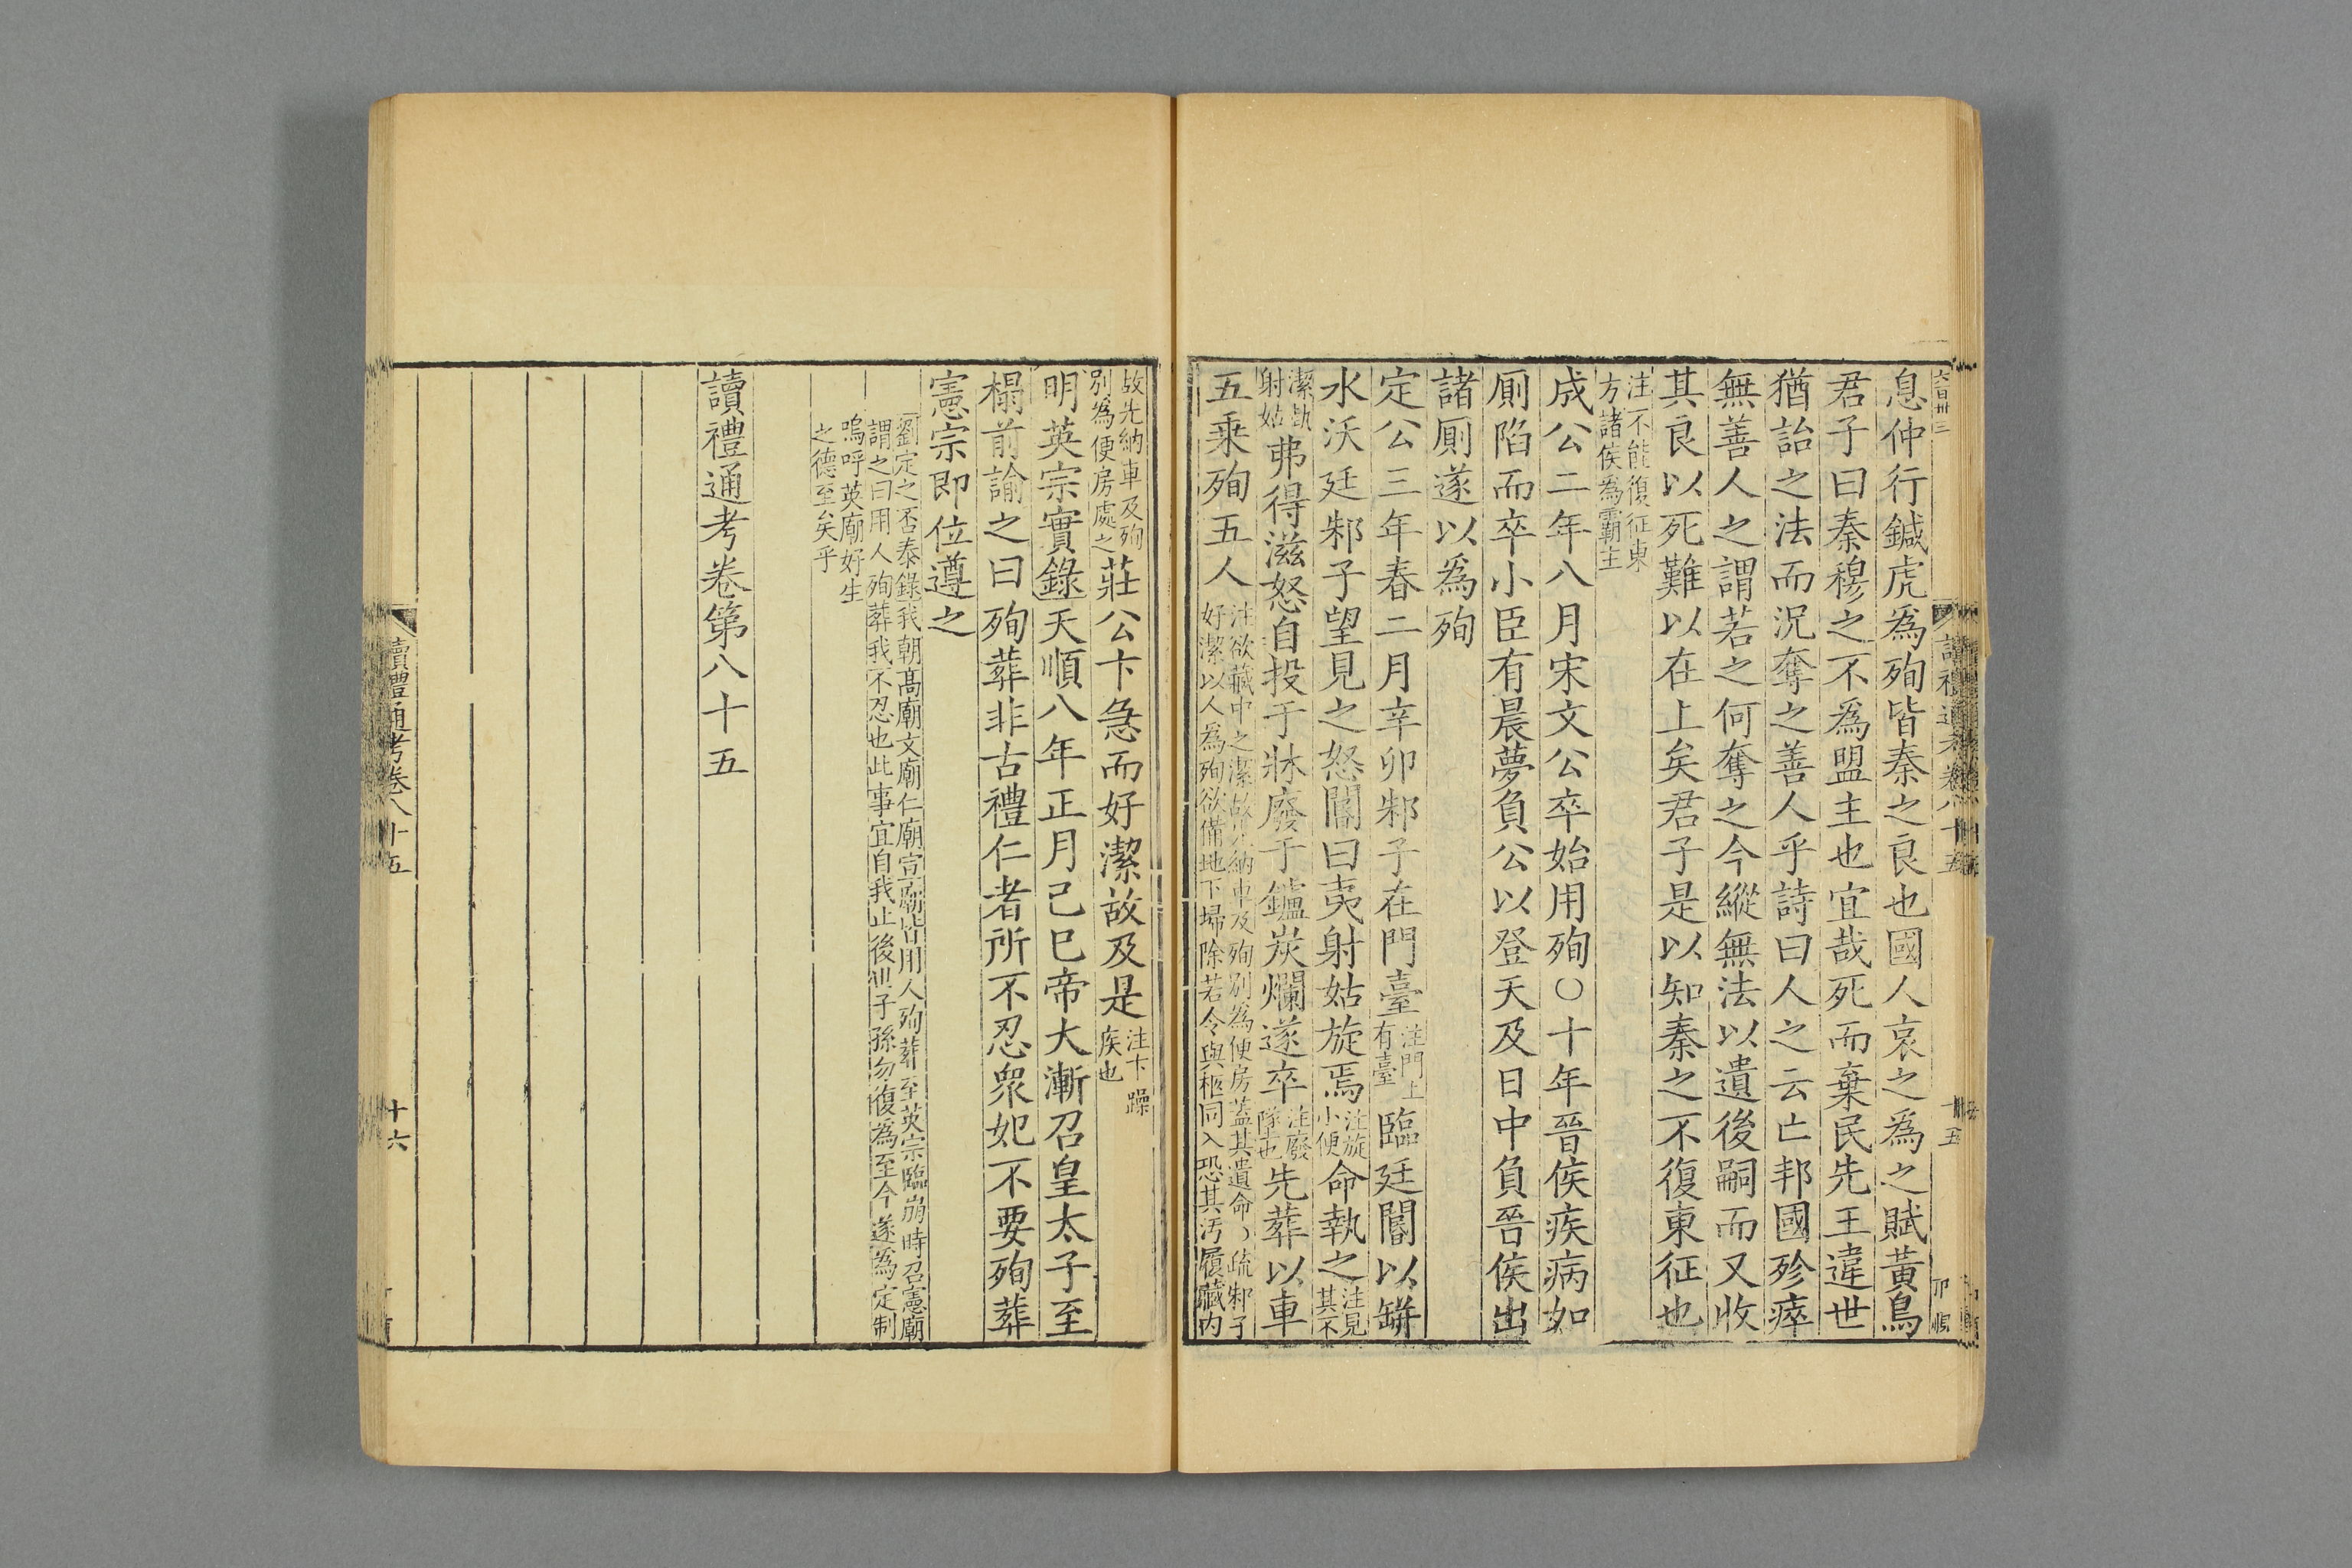 六百卅三
息仲行鍼虎爲殉皆秦之良也國人哀之爲之賦黃鳥
君子曰秦穆之不爲盟主也宜哉死而棄民先王違世
猶詒之法而況奪之善人乎詩曰人之云亡邦國殄瘁
無善人之謂若之何奪之今縱無法以遺後嗣而又收
其良以死難以在上矣君子是以知秦之不復東征也
注不能復征東
方諸侯為霸主
成公二年八月宋文公卒始用殉○十年晉侯疾病如
廁陷而卒小臣有晨夢負公以登天及日中負晉侯出
諸廁遂以爲殉
定公三年春二月辛卯邾子在門臺注門上有臺臨廷閽以缾
水沃廷邾子望見之怒閽曰夷射姑旋焉注旋小便命執之注見其不
潔執射姑弗得滋怒自投于牀廢于鑪炭爛遂卒注廢墜也先葬以車
五乗殉五人
注欲藏中之潔故先納車及殉別為便房蓋其遺命○疏邾子
好潔以人為殉欲備地下埽除若令與柩同入恐其汚履藏内
故先納車及殉
別為便房處之
莊公卞急而好潔故及是注卞躁疾也
明英宗實錄天順八年正月己巳帝大漸召皇太子至
榻前諭之曰殉葬非古禮仁者所不忍衆妃不要殉葬
憲宗即位遵之
劉定之否泰錄我朝高廟文廟仁廟宣廟皆用人殉葬至英宗臨崩時召憲廟
謂之曰用人殉葬我不忍也此事宜自我止後世子孫勿復為至今遂為定制
嗚呼英廟好生
之德至矣乎
讀禮通考卷第八十五
讀禮通考卷八十五
十六